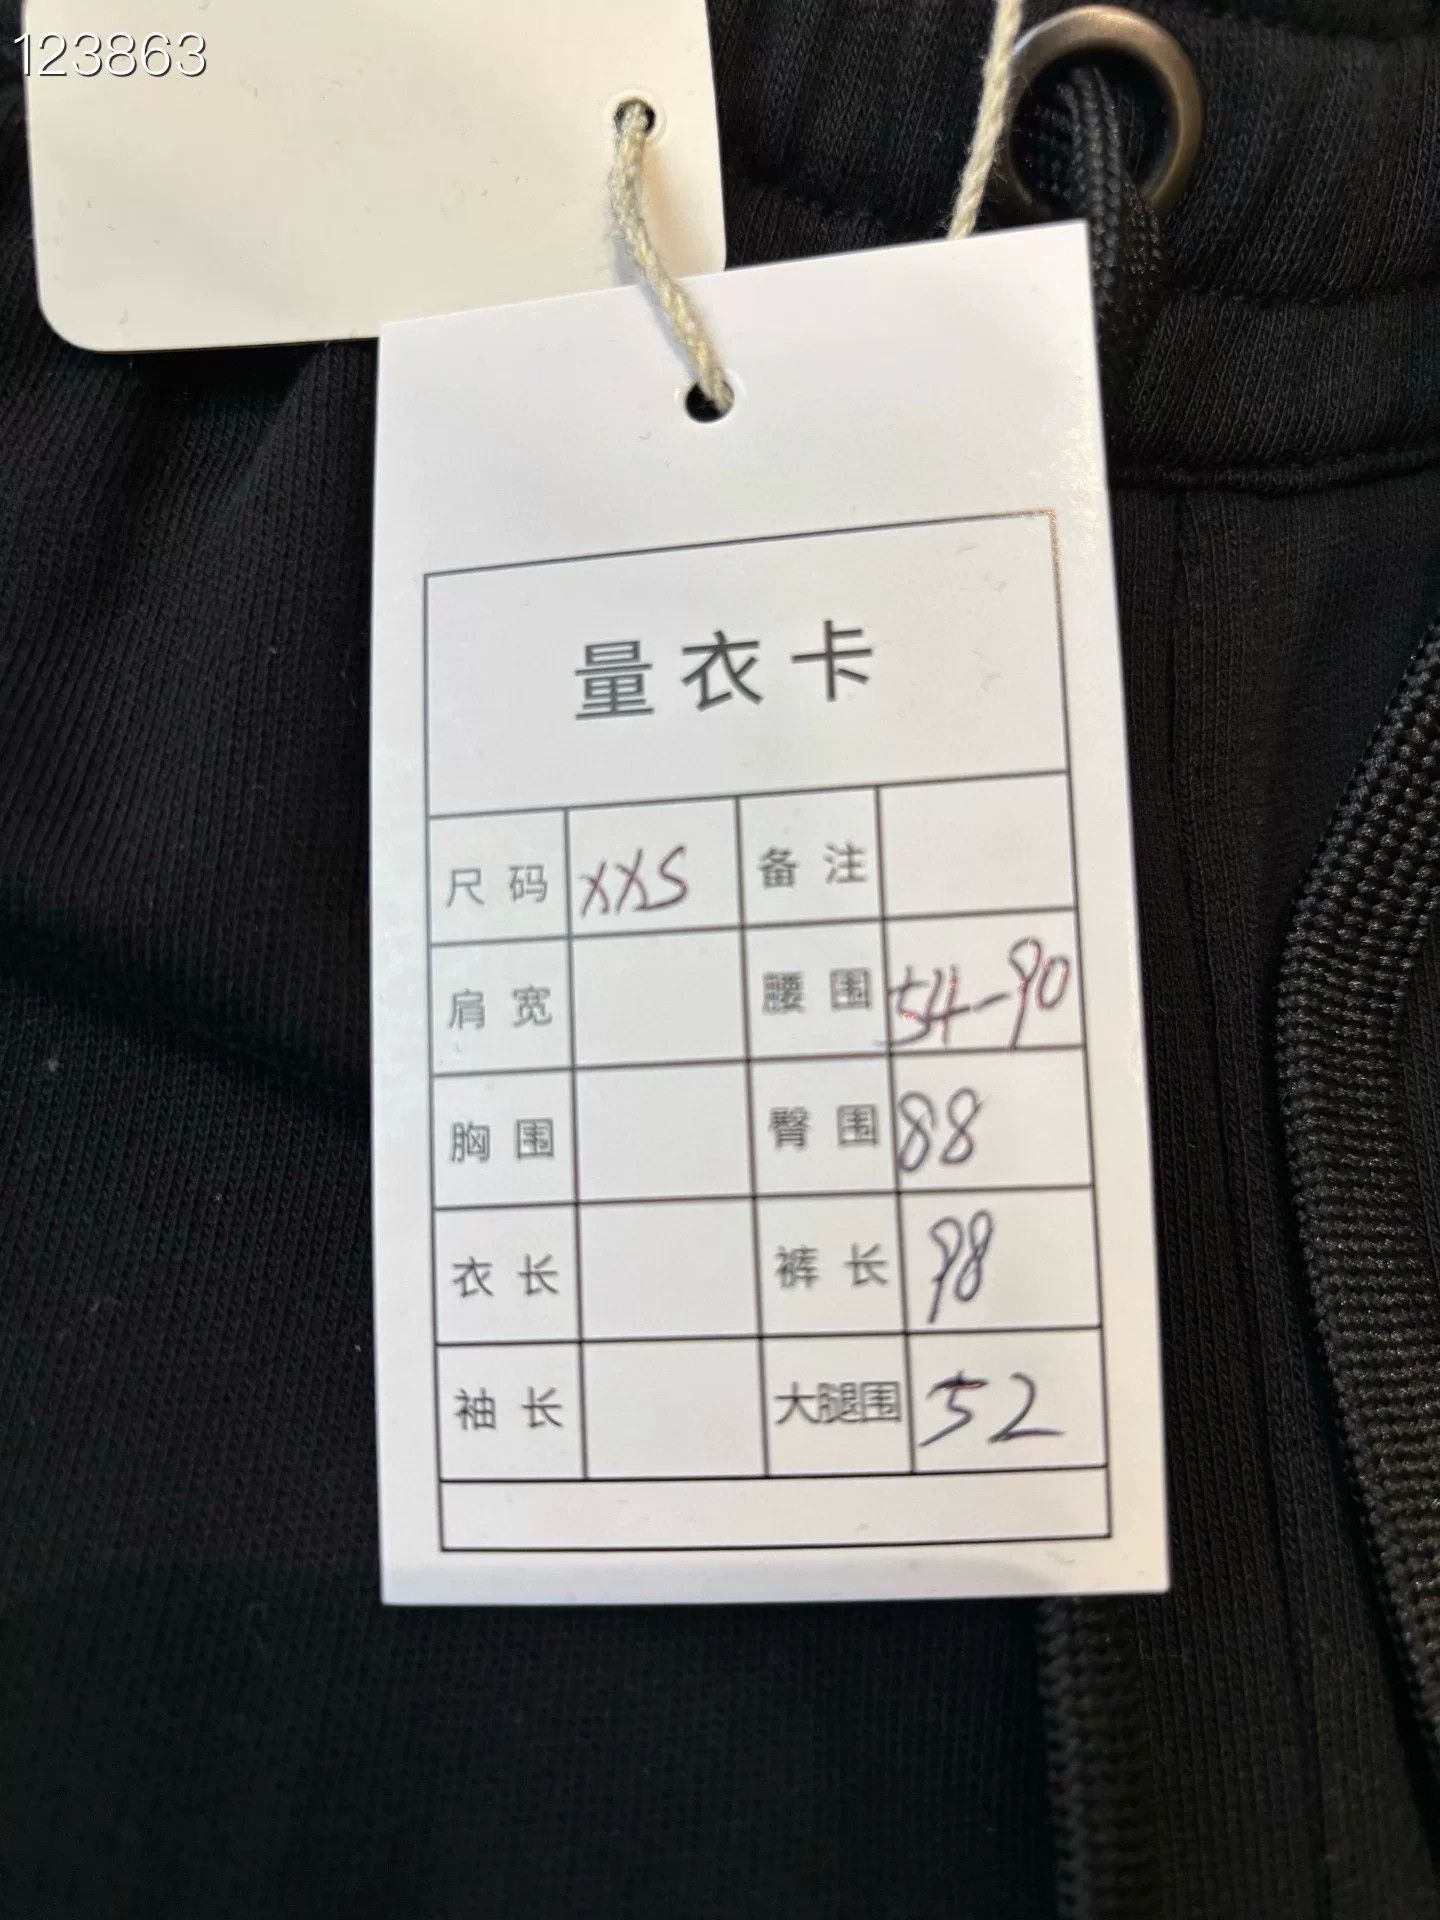 123863
量衣卡
尺码 XXS 备注
肩宽 腰围 54-90
胸围 臀围 88
衣长 裤长 98
袖长 大腿围 52